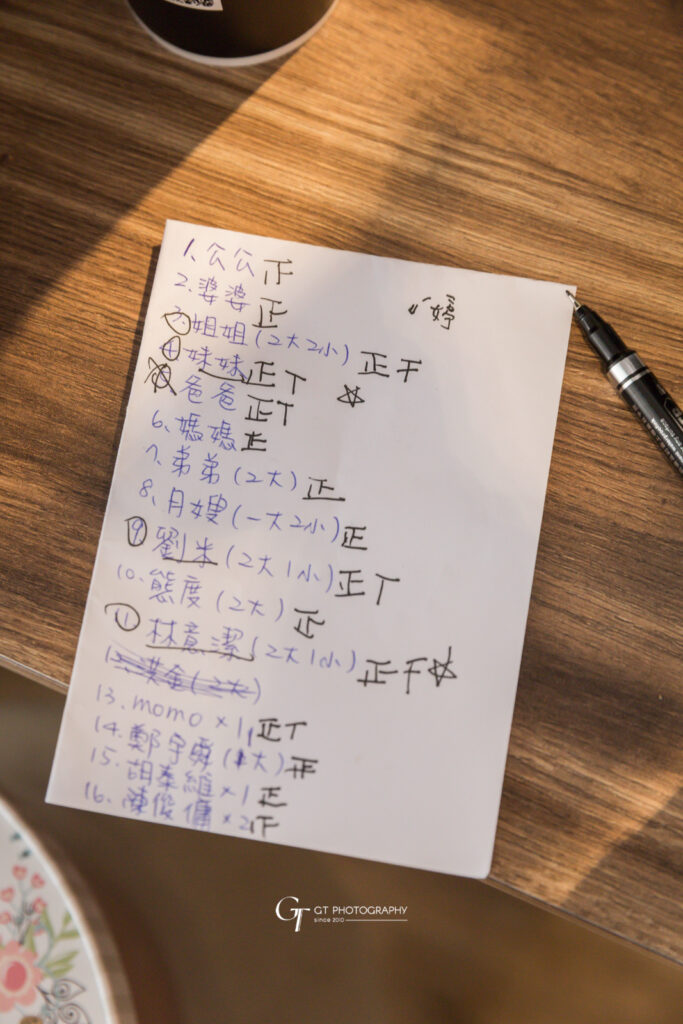 1. 公公 正
2. 婆婆 正
婷
3. 姐姐 (2大2小) 正 干
4 妹妹 正 丅
爸爸 正丅
6. 媽媽 正
7. 弟弟 (2大) 正
8. 月嫂 (一大2小) 正
9 劉米 (2大1小) 正 丅
10. 態度 (2大) 正
11 林意潔 (2大1小) 正 干
13. momo × 1 正 丅
14. 鄭宇舜 (大) 正
15. 胡秦維 × 1 正
16. 陳俊傭 × 2
GT GT PHOTOGRAPHY
since 2010